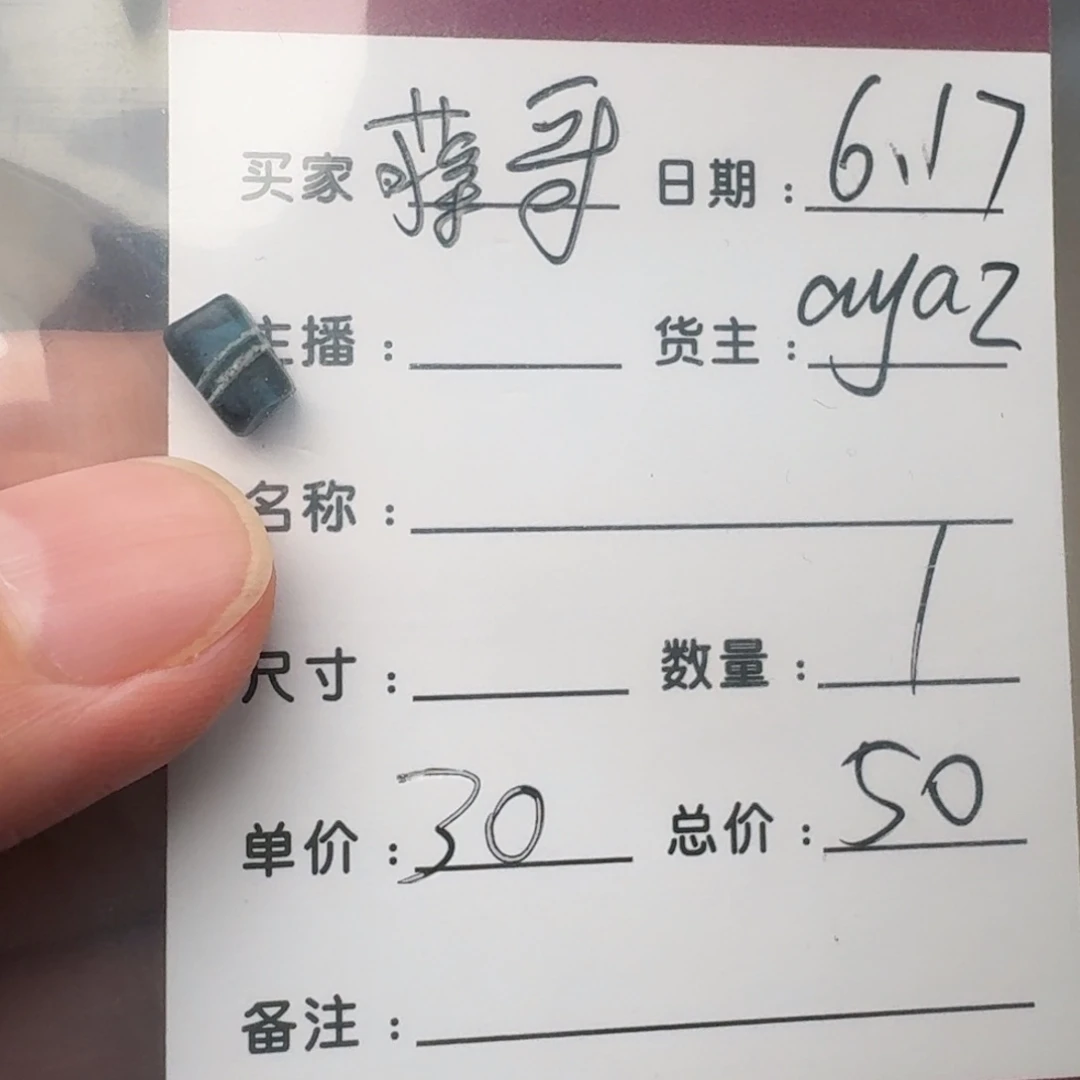 买家 薛哥 日期：6.17
主播： 货主：ayaz
名称：
尺寸： 数量：1
单价：30 总价：50
备注：